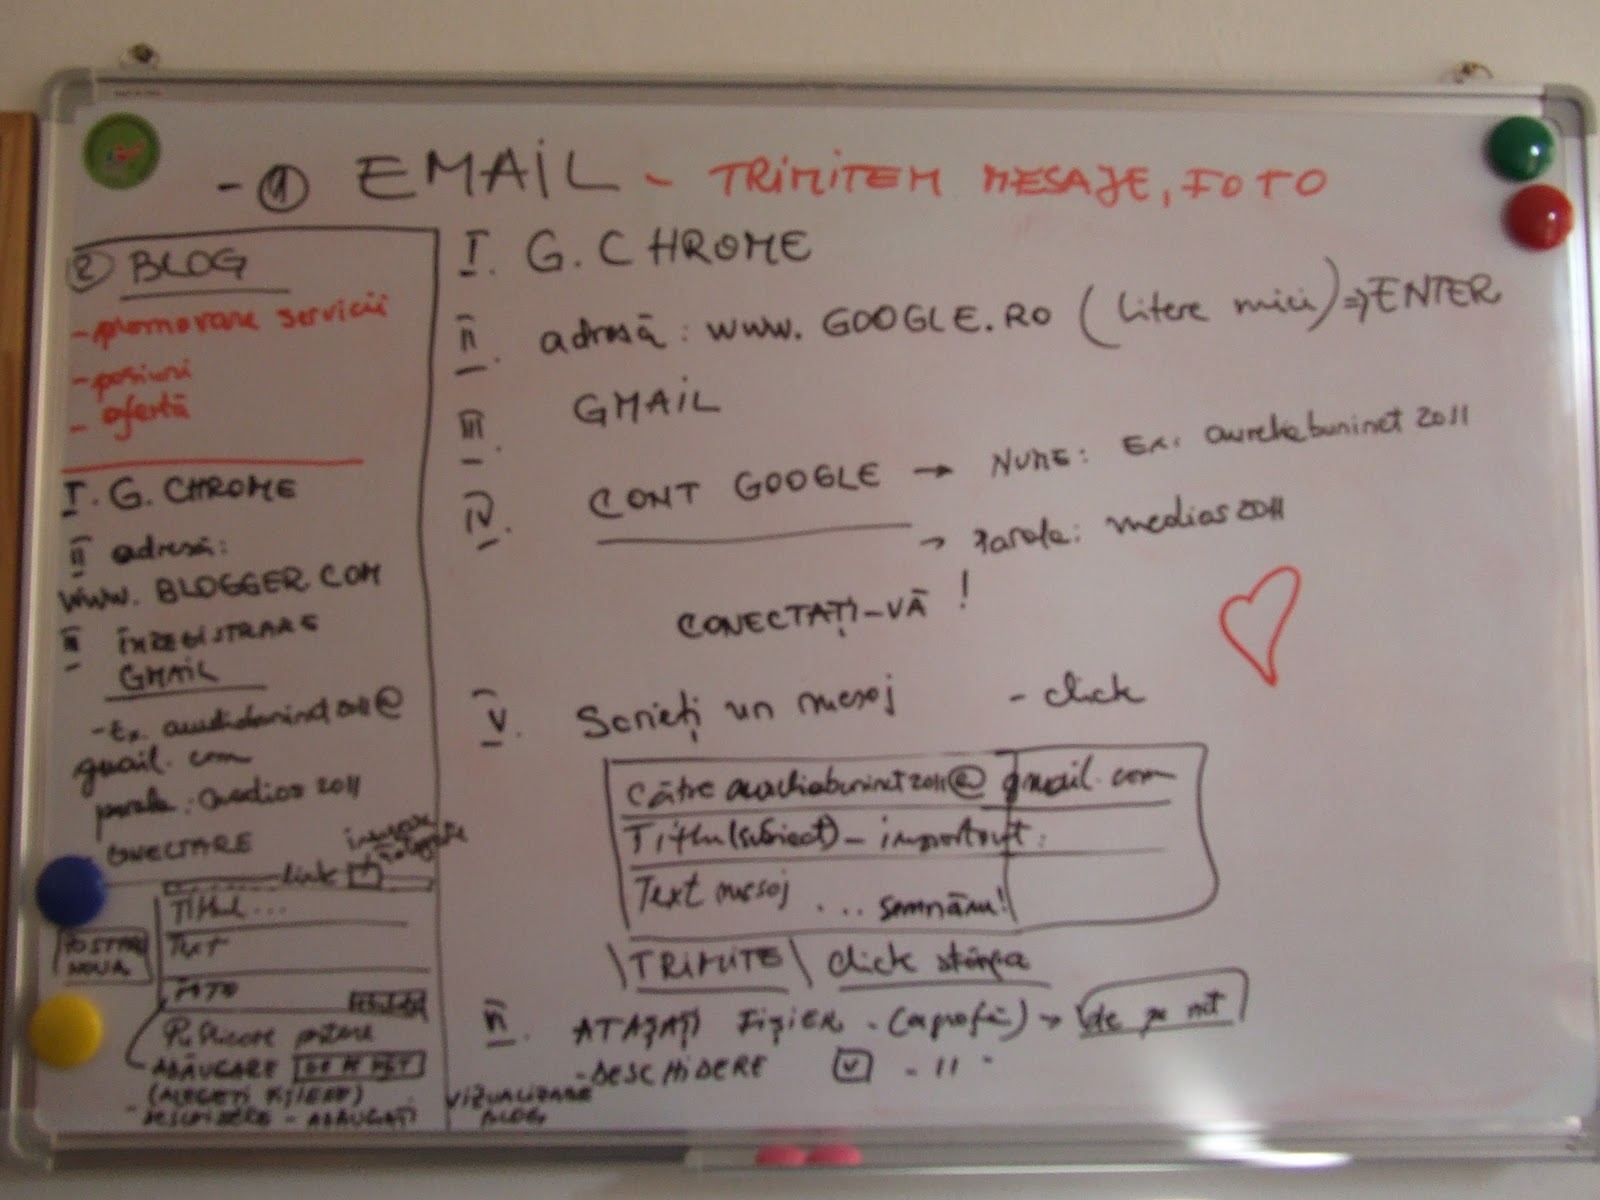 - ① EMAIL - TRIMITEM MESAJE, FOTO
I. G. CHROME
II. adresă: www. GOOGLE.RO (litere mici) => ENTER
III. GMAIL
IV. CONT GOOGLE → NUME: Ex: aureliabuninet 2011
→ parola: medias 2011
CONECTAȚI-VĂ !
V. Scrieți un mesaj - click
Către aureliabuninet2011@gmail.com
Titlu (subiect) - important:
Text mesaj ... semnăm!
\TRIMITE\ click stânga
ATAȘAȚI FIȘIER - (agrafă) → de pe net
- DESCHIDERE V - 11
② BLOG
- promovare servicii
- pasiuni
- ofertă
I. G. CHROME
II adresă:
www. BLOGGER COM
ÎNREGISTRARE
GMAIL
- Ex. 2011@
gmail. com
parola: medias 2011
CONECTARE
link
Titlul ...
Text
FOTO
POSTARE
NOUĂ
Publicare postare
ADĂUGARE DE PE NET
(ALEGEȚI FIȘIERE)
- DESCHIDERE - ADĂUGAȚI
VIZUALIZARE
BLOG